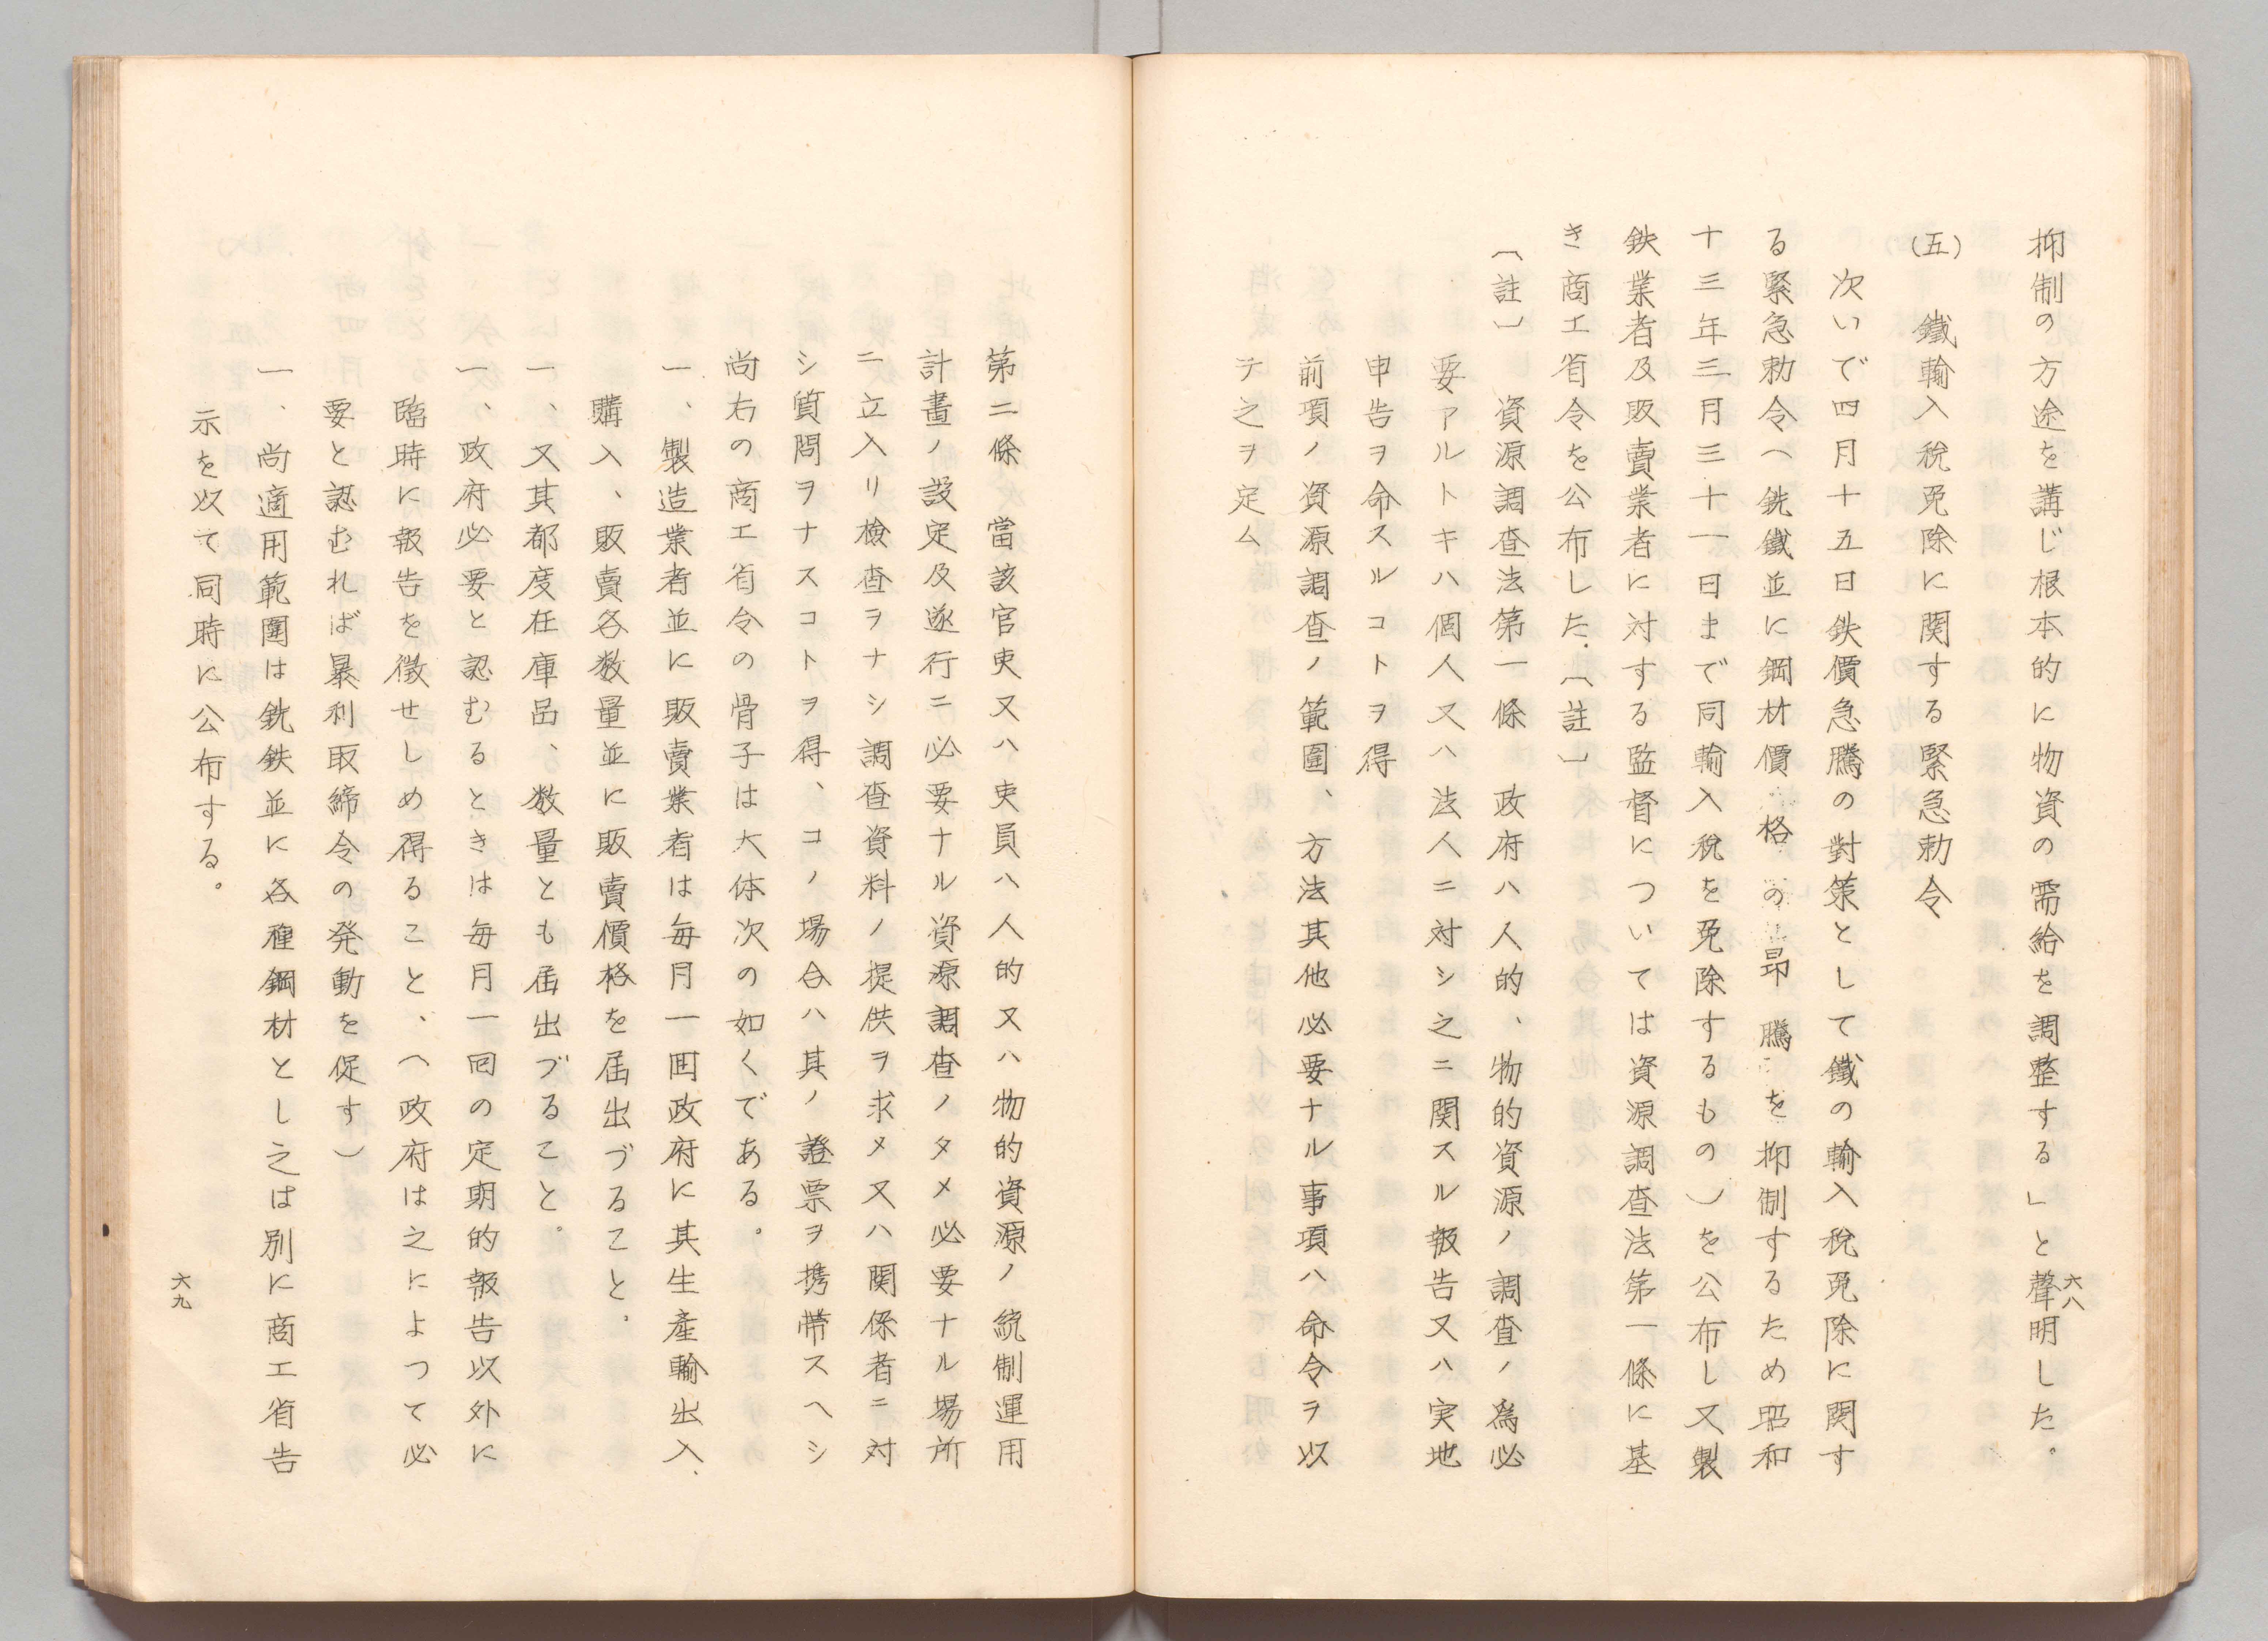 抑制の方途を講じ根本的に物資の需給を調整する」と聲明した。
六八
(五)　鐵輸入稅免除に関する緊急勅令
次いで四月十五日鉄價急騰の對策として鐵の輸入稅免除に関す
る緊急勅令（銑鐵並に鋼材價格の昻騰を抑制するため昭和
十三年三月三十一日まで同輸入稅を免除するもの）を公布し又製
鉄業者及販賣業者に対する監督については資源調査法第一條に基
き商工省令を公布した.〔註〕
〔註〕　資源調查法第一條　政府ハ人的、物的資源ノ調查ノ爲必
要アルトキハ個人又ハ法人ニ対シ之ニ関スル報告又ハ実地
申告ヲ命スルコトヲ得
前項ノ資源調查ノ範圍、方法其他必要ナル事項ハ命令ヲ以
テ之ヲ定ム
第二條　當該官吏又ハ吏員ハ人的又ハ物的資源ノ統制運用
計畫ノ設定及遂行ニ必要ナル資源調查ノタメ必要ナル場所
ニ立入リ檢查ヲナシ調查資料ノ提供ヲ求メ又ハ関係者ニ対
シ質問ヲナスコトヲ得、コノ場合ハ其ノ證票ヲ携帶スヘシ
尚右の商工省令の骨子は大体次の如くである。
一、製造業者並に販賣業者は每月一囘政府に其生產輸出入、
購入、販賣各数量並に販賣價格を届出づること。
一、又其都度在庫品、数量とも届出づること。
一、政府必要と認むるときは每月一回の定期的報告以外に
臨時に報告を徴せしめ得ること、（政府は之によつて必
要と認むれば暴利取締令の発動を促す）
一、尚適用範圍は銑鉄並に各種鋼材とし之は別に商工省告
示を以て同時に公布する。
六九